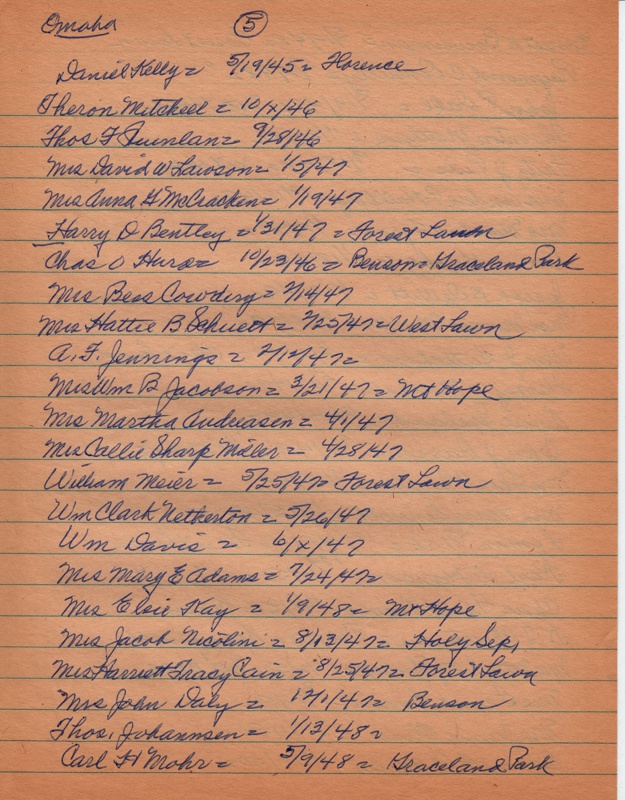 Omaha 5
Daniel Kelly = 5/19/45 = Florence
Theron Mitchell = 10/x/46
Thos F Quinlan = 9/28/46
Mrs David W Lawson = 1/5/47
Mrs Anna G McCracken = 1/19/47
Harry D Bentley = 1/31/47 = Forest Lawn
Chas O = 10/23/46 = Benson = Graceland Park
Mrs Bess Cowdery = 2/14/47
Mrs Hattie B Schuett = 2/25/47 = West Lawn
A. F. Jennings = 2/12/47 =
Mrs Wm B Jacobson = 3/21/47 = Mt Hope
Mrs Martha Andreasen = 4/1/47
Mrs Callie Sharp Miller = 4/28/47
William Meier = 5/25/47 = Forest Lawn
Wm Clark Netherton = 5/26/47
Wm Davis = 6/x/47
Mrs Mary E Adams = 7/24/47 =
Mrs Elsie Kay = 1/9/48 = Mt Hope
Mrs Jacob Nicolini = 8/13/47 = Holy Sep.
Mrs Harriett Tracy Cain = 8/25/47 = Forest Lawn
Mrs John Daly = 12/1/47 = Benson
Thos. Johannsen = 1/13/48 =
Carl H Mohr = 5/9/48 = Graceland Park